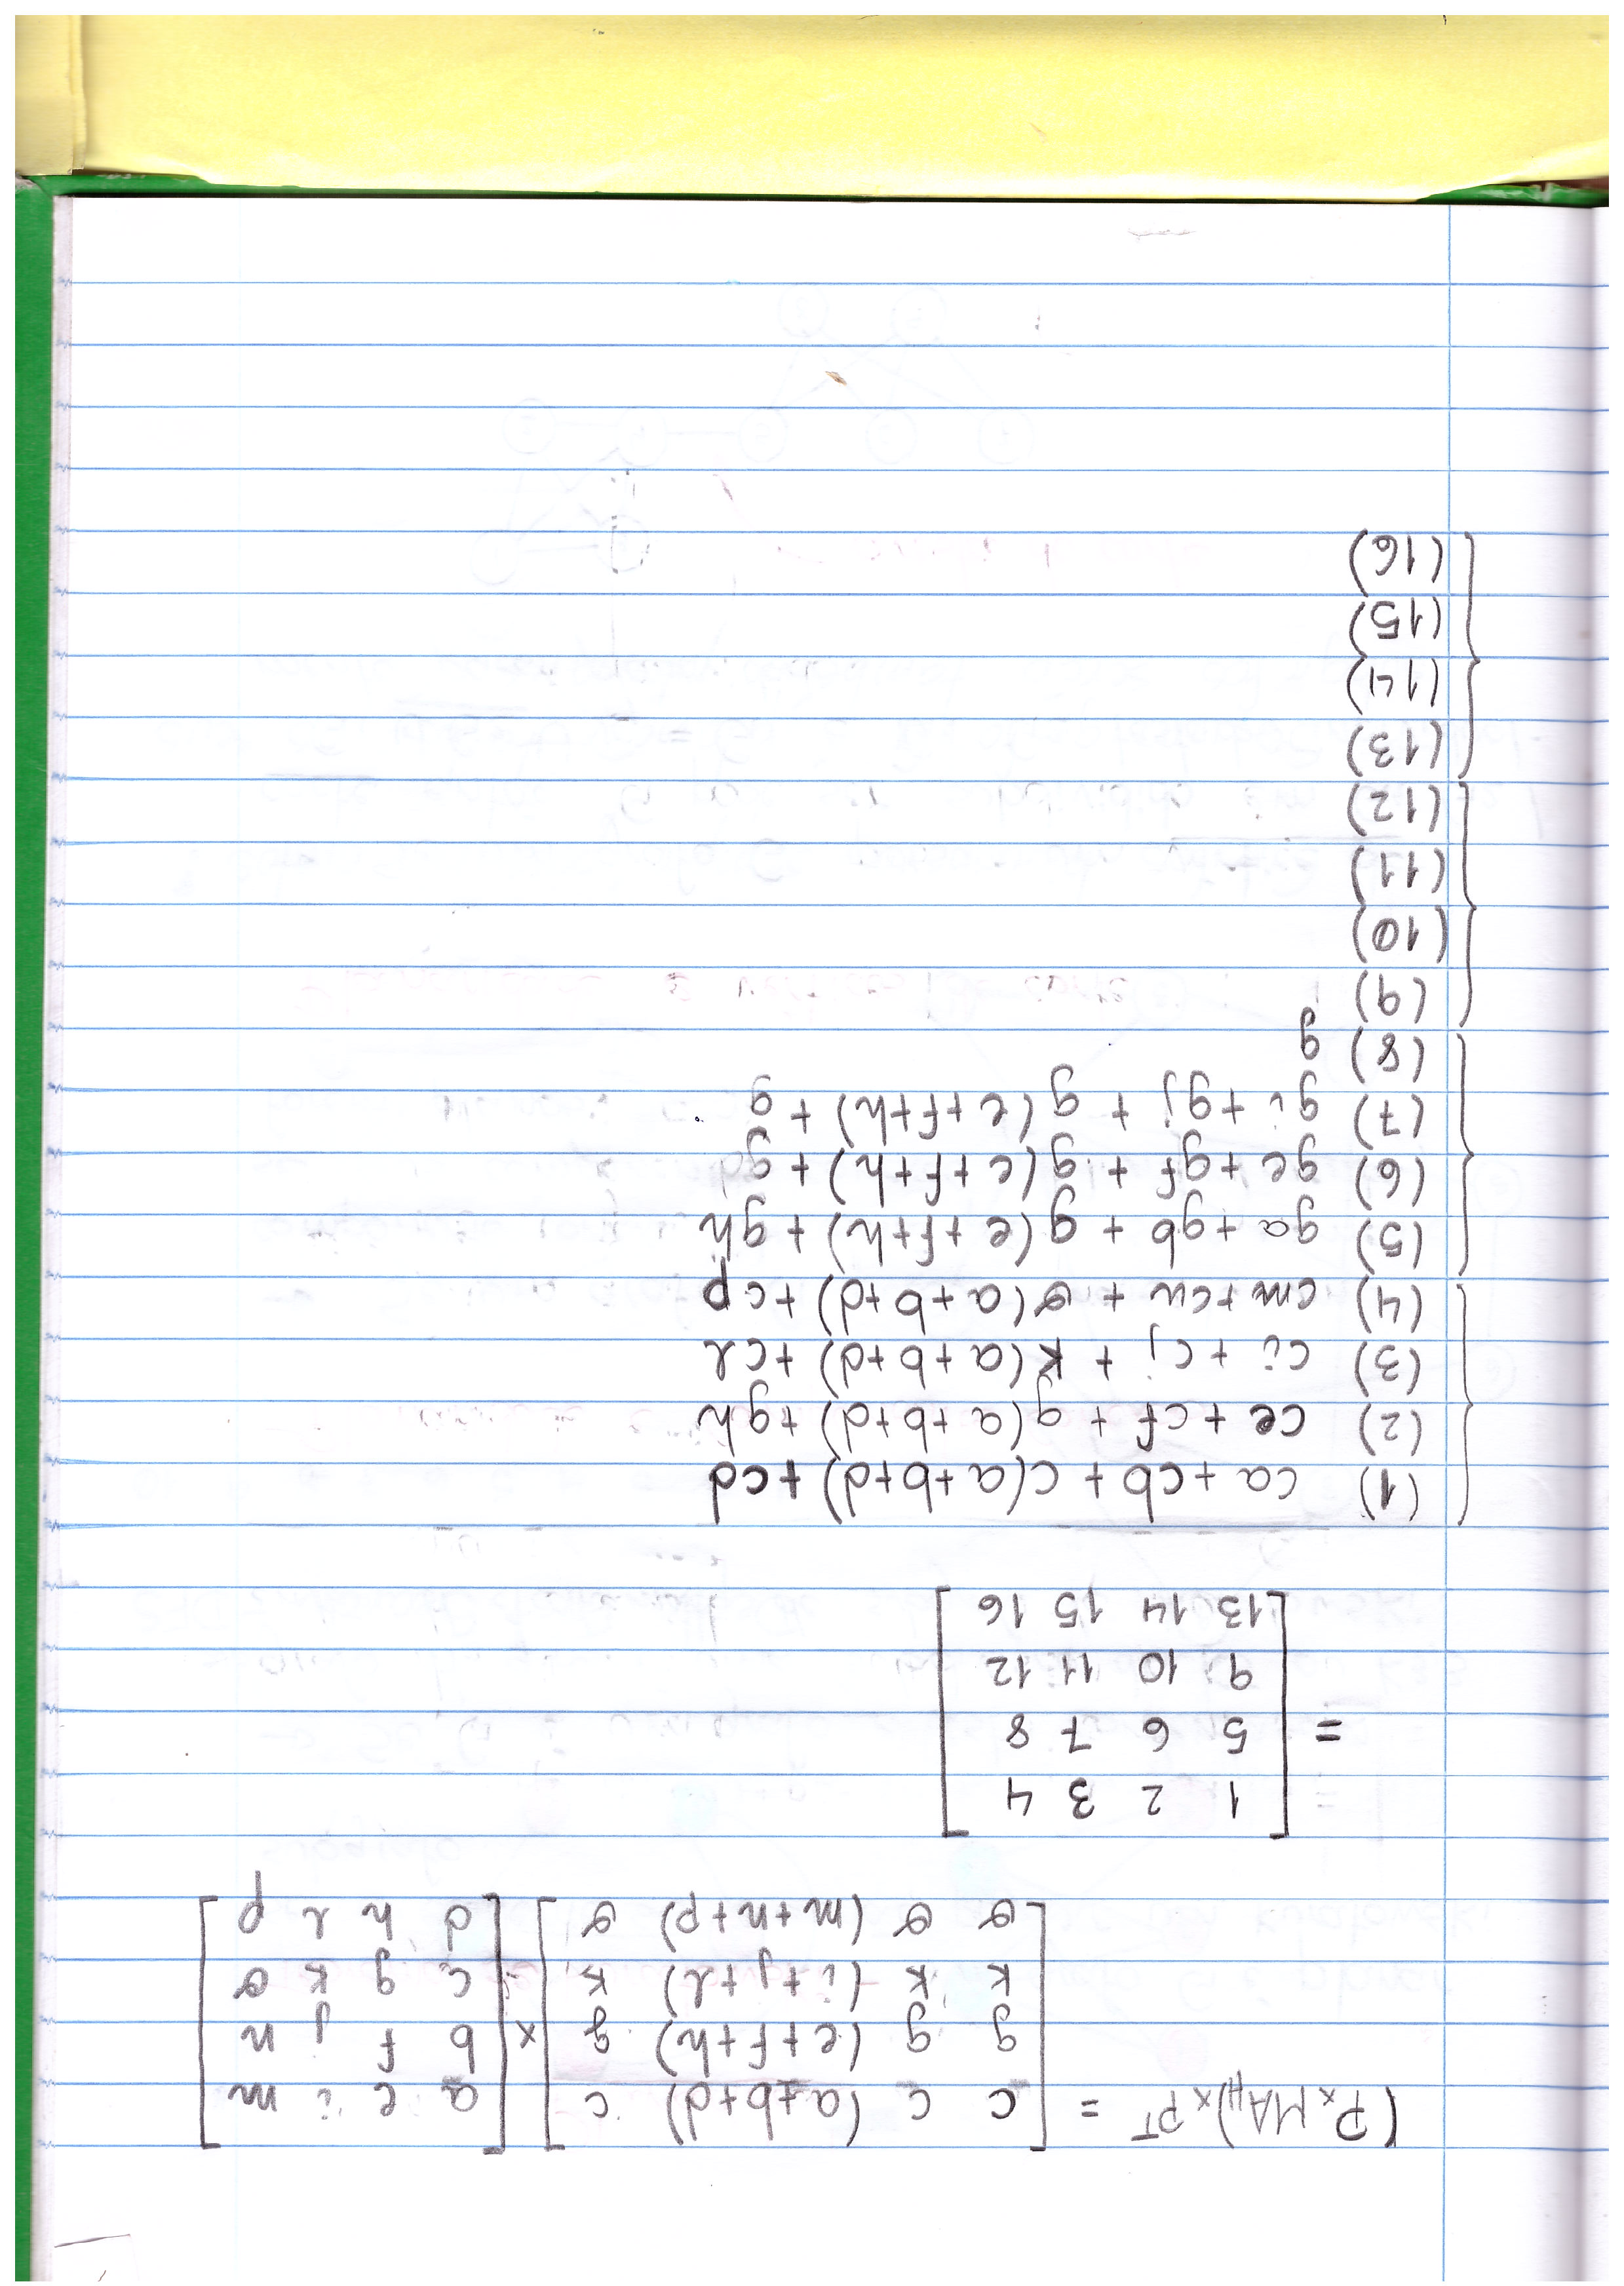 (P x MA_H) x P^T = [ c c (a+b+d) c ] x [ a e i m ]
g g (e+f+h) g b f j n
k k (i+j+l) k c g k o
o o (m+n+p) o d h l p
= [ 1 2 3 4 ]
5 6 7 8
9 10 11 12
13 14 15 16
(1) ca + cb + c(a+b+d) + cd
(2) ce + cf + g(a+b+d) + gh
(3) ci + cj + k(a+b+d) + cl
(4) cm + cn + o(a+b+d) + cp
(5) ga + gb + g(e+f+h) + gh
(6) ge + gf + g(e+f+h) + g
(7) gi + gj + g(e+f+h) + g
(8) g
(9)
(10)
(11)
(12)
(13)
(14)
(15)
(16)